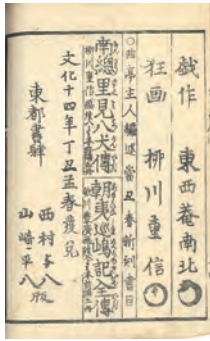 戯作 東西菴南北
狂画 柳川重信
曲亭主人編述當丑春新刻書目
南總里見八犬傳
朝夷巡嶋記全傳
文化十四年丁丑孟春發兌
東都書肆
西村与八
山﨑平八版